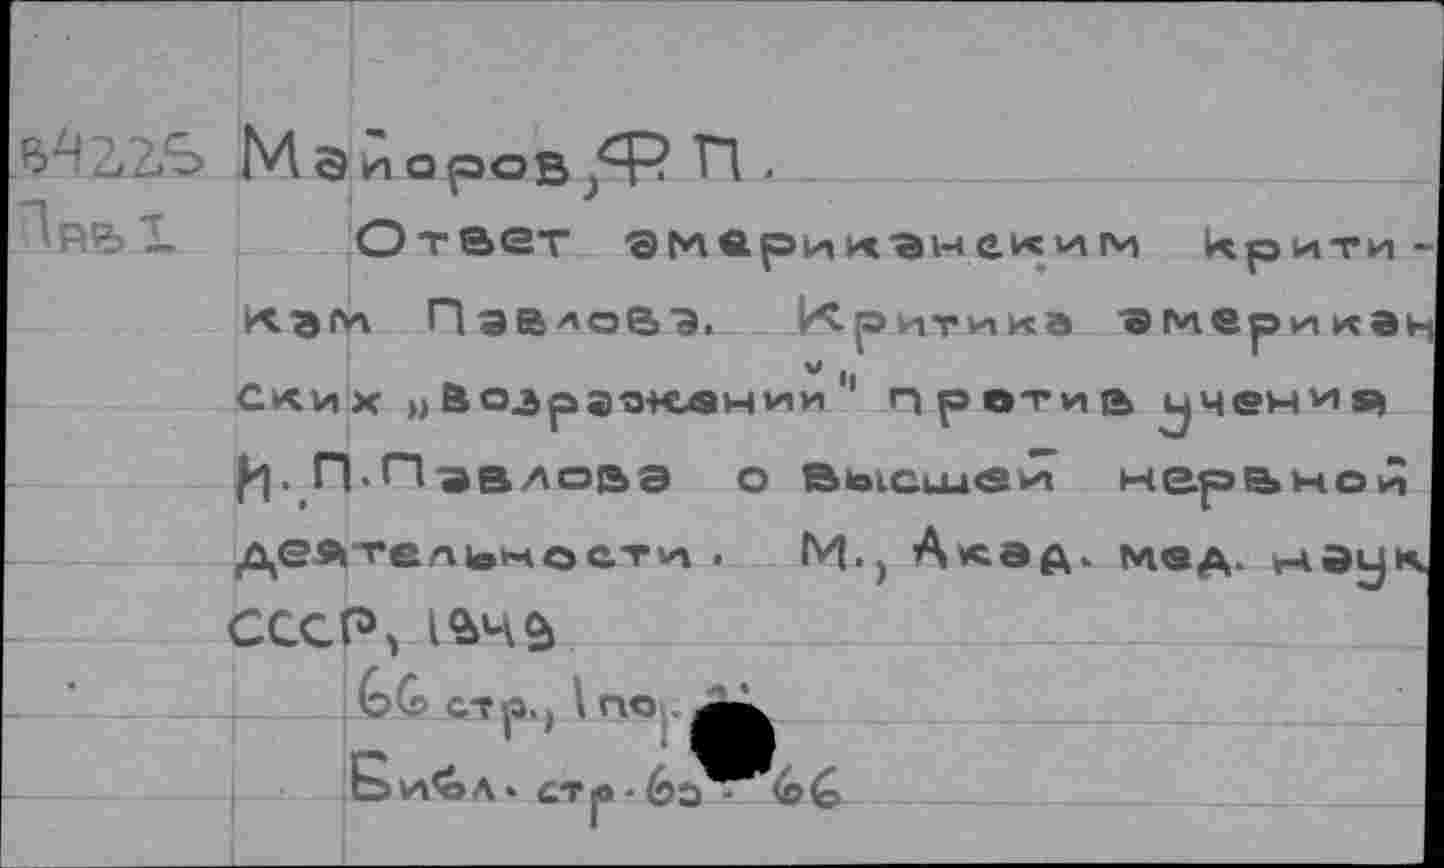 в4225 Майоров, Ф. П.
Пав1 Ответ американским крити-
кам Павлова. Критика американ
ских „возражений" против учения
И. П. Павлова о высшей нервной
деятельности. М., Акад. мед. наук
СССР, 1949
66 стр., 1
Библ. стр.